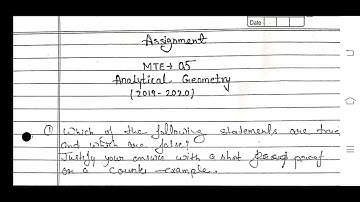 Date
Assignment
MTE → 05
Analytical Geometry
(2019-2020)
① Which of the following statements are true
and which are false?
Justify your answer with a shot proof
or a counter example.